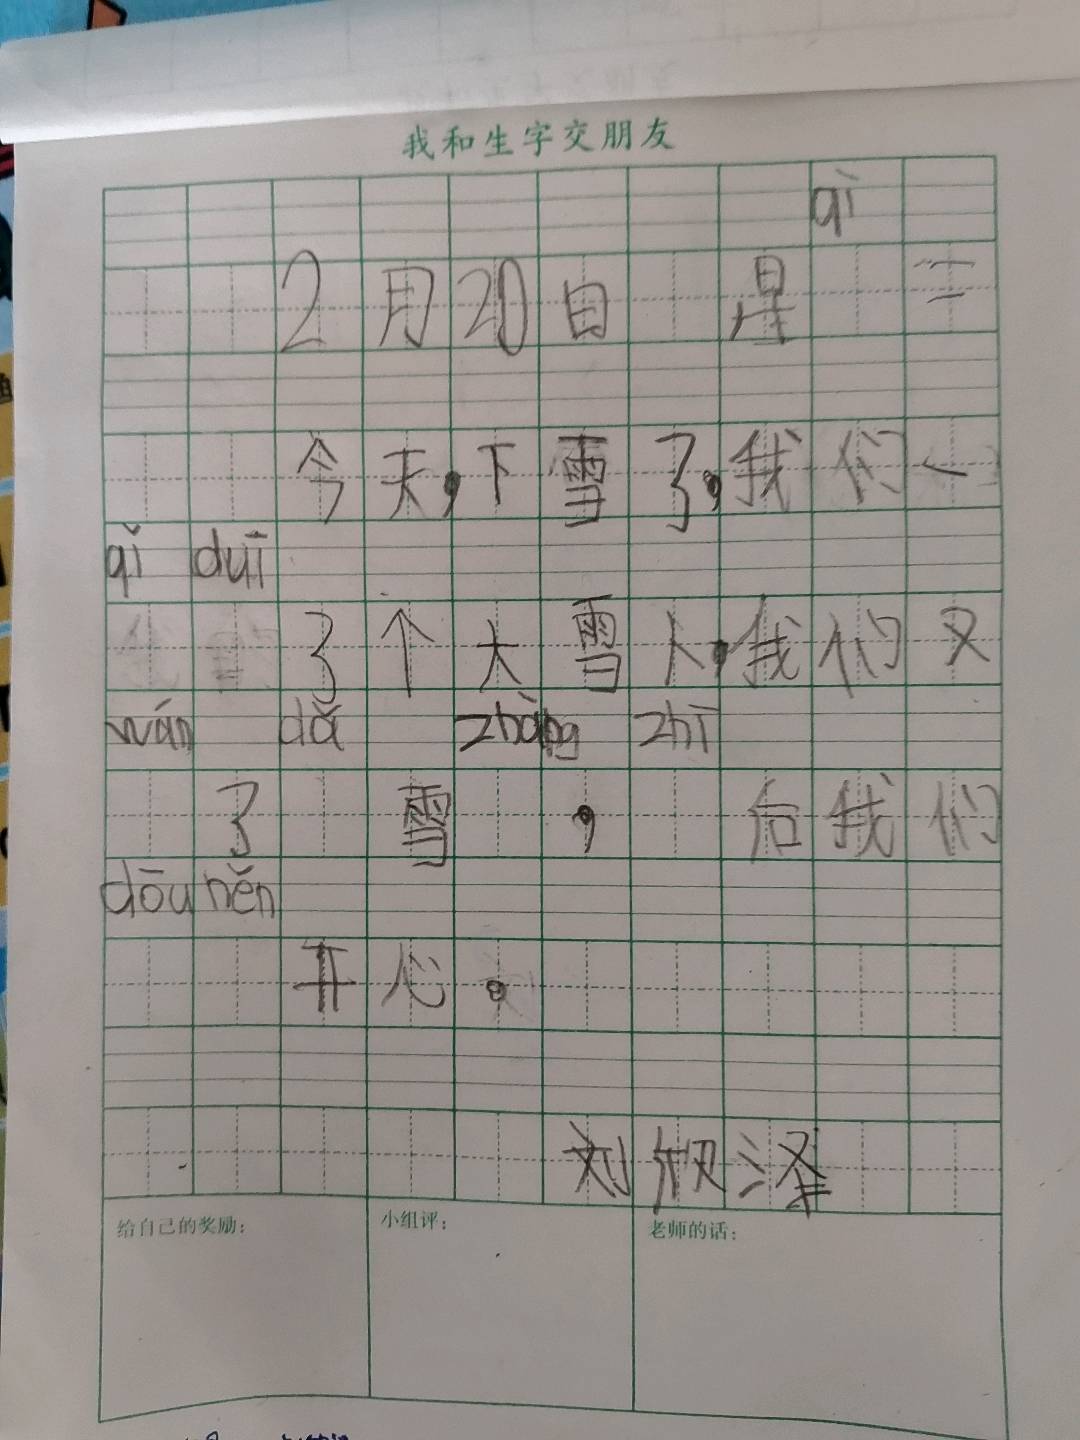 我和生字交朋友
2月20日 星qì二
今天,下雪了,我们一
qǐ duī了个大雪人,我们又
wán了dǎ雪zhàng,zhī后我们
dōu hěn开心。
刘欣泽
给自己的奖励:
小组评:
老师的话: